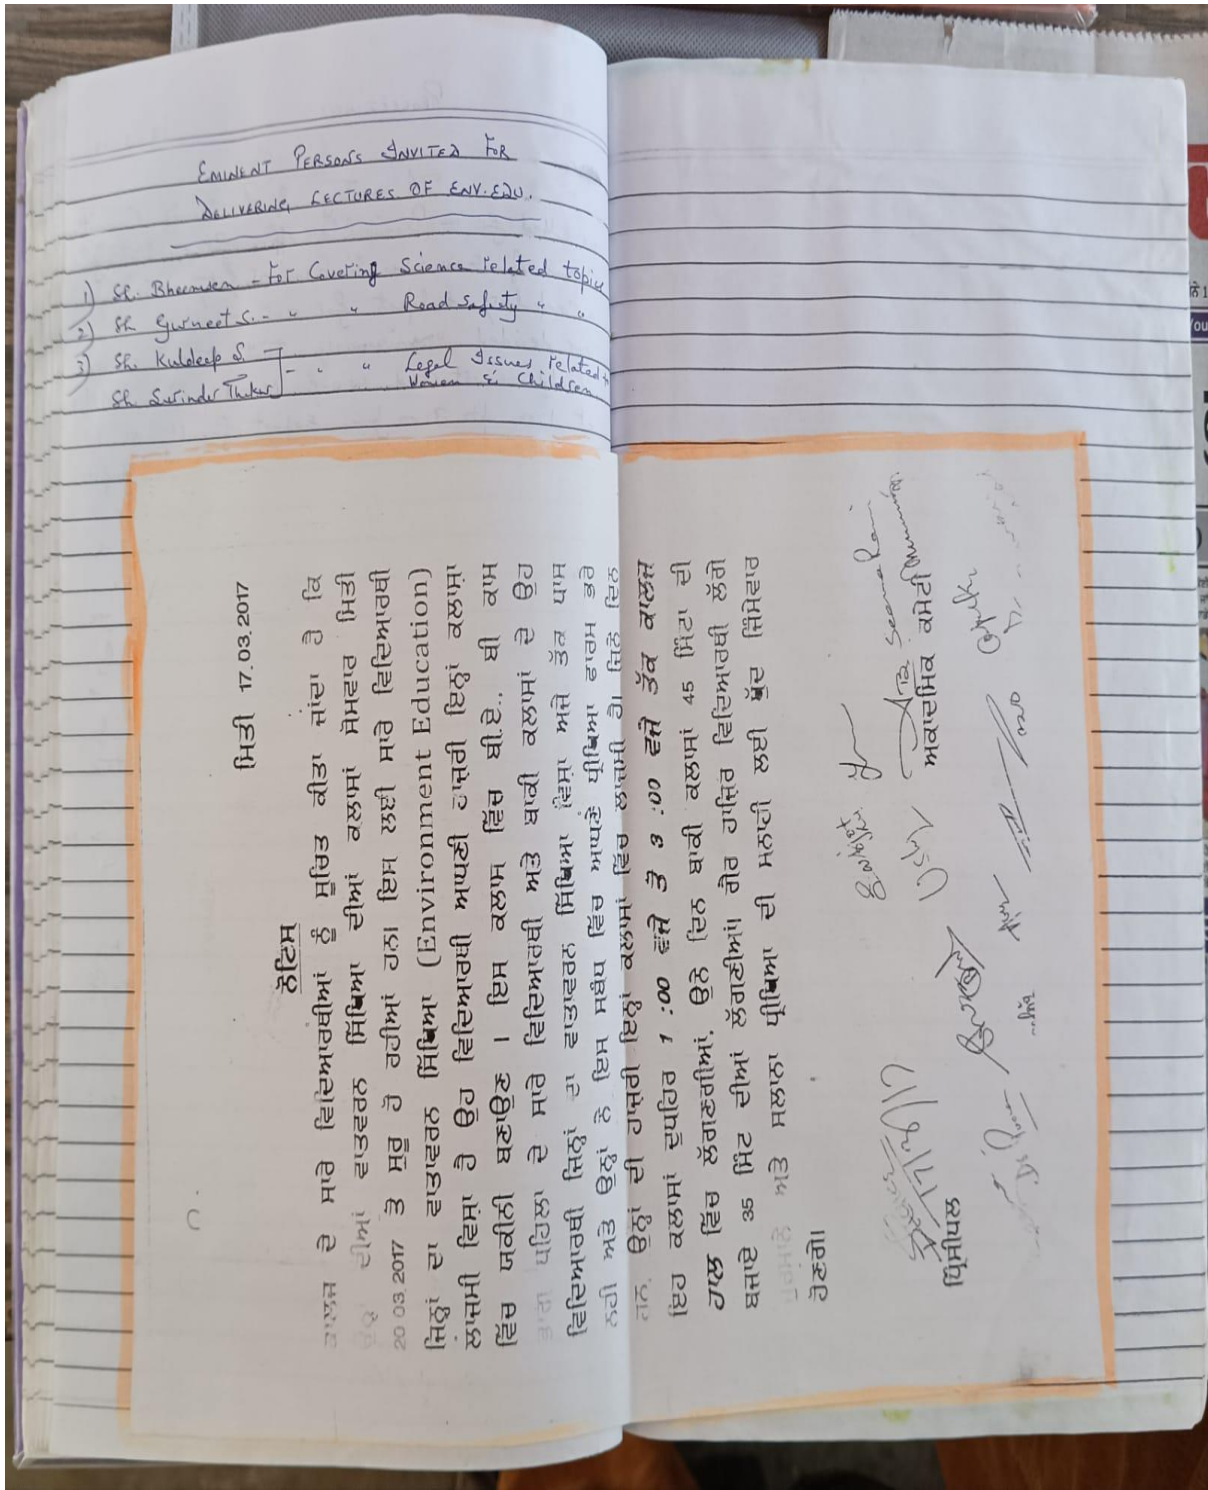 EMINENT PERSONS INVITED FOR
DELIVERING LECTURES OF ENV. EDU.
1) Sh. Bheemsen - For Covering Science related topics
2) Sh Gurneet S. - " " Road Safety " "
3) Sh. Kuldeep S. - " " Legal Issues related to
Sh Surinder Thakur Women & Children
ਮਿਤੀ 17.03.2017
ਨੋਟਿਸ
ਕਾਲਜ ਦੇ ਸਾਰੇ ਵਿਦਿਆਰਥੀਆਂ ਨੂੰ ਸੂਚਿਤ ਕੀਤਾ ਜਾਂਦਾ ਹੈ ਕਿ
ਦੀਆਂ ਵਾਤਾਵਰਨ ਸਿੱਖਿਆ ਦੀਆਂ ਕਲਾਸਾਂ ਸੋਮਵਾਰ ਮਿਤੀ
20 03.2017 ਤੋ ਸ਼ੁਰੂ ਹੋ ਰਹੀਆਂ ਹਨ। ਇਸ ਲਈ ਸਾਰੇ ਵਿਦਿਆਰਥੀ
ਜਿਨ੍ਹਾਂ ਦਾ ਵਾਤਾਵਰਨ ਸਿੱਖਿਆ (Environment Education)
ਲਾਜ਼ਮੀ ਵਿਸ਼ਾ ਹੈ ਉਹ ਵਿਦਿਆਰਥੀ ਆਪਣੀ ਹਾਜ਼ਰੀ ਇਨ੍ਹਾਂ ਕਲਾਸਾ
ਵਿੱਚ ਯਕੀਨੀ ਬਣਾਉਣ । ਇਸ ਕਲਾਸ ਵਿੱਚ ਬੀ.ਏ., ਬੀ ਕਾਮ
ਪਹਿਲਾ ਦੇ ਸਾਰੇ ਵਿਦਿਆਰਥੀ ਅਤੇ ਬਾਕੀ ਕਲਾਸਾਂ ਦੇ ਉਹ
ਵਿਦਿਆਰਥੀ ਜਿਨ੍ਹਾਂ ਦਾ ਵਾਤਾਵਰਨ ਸਿੱਖਿਆ ਵਿਸ਼ਾ ਅਜੇ ਤੱਕ ਪਾਸ
ਨਹੀ ਅਤੇ ਉਨ੍ਹਾਂ ਨੇ ਇਸ ਸਬੰਧ ਵਿੱਚ ਆਪਣੇ ਪ੍ਰੀਖਿਆ ਫਾਰਮ ਭਰੇ
ਹਨ, ਉਨ੍ਹਾਂ ਦੀ ਹਾਜ਼ਰੀ ਇਨ੍ਹਾਂ ਕਲਾਸਾਂ ਵਿੱਚ ਲਾਜ਼ਮੀ ਹੈ। ਜਿਨੇ ਦਿਨ
ਇਹ ਕਲਾਸਾਂ ਦੁਪਹਿਰ 1 :00 ਵਜੇ ਤੋਂ 3 :00 ਵਜੇ ਤੱਕ ਕਾਲਜ
ਹਾਲ ਵਿੱਚ ਲੱਗਣਗੀਆਂ, ਉਨੇ ਦਿਨ ਬਾਕੀ ਕਲਾਸਾਂ 45 ਮਿੰਟਾ ਦੀ
ਬਜਾਏ 35 ਮਿੰਟ ਦੀਆਂ ਲੱਗਣੀਆਂ। ਗੈਰ ਹਾਜ਼ਿਰ ਵਿਦਿਆਰਥੀ ਲੱਗੇ
ਜੁਰਮਾਨੇ ਅਤੇ ਸਲਾਨਾ ਪ੍ਰੀਖਿਆ ਦੀ ਮਨਾਹੀ ਲਈ ਖ਼ੁੱਦ ਜ਼ਿੰਮੇਵਾਰ
ਹੋਣਗੇ।
17/3/17
ਪ੍ਰਿੰਸੀਪਲ
Seema Rani
ਅਕਾਦਮਿਕ ਕਮੇਟੀ